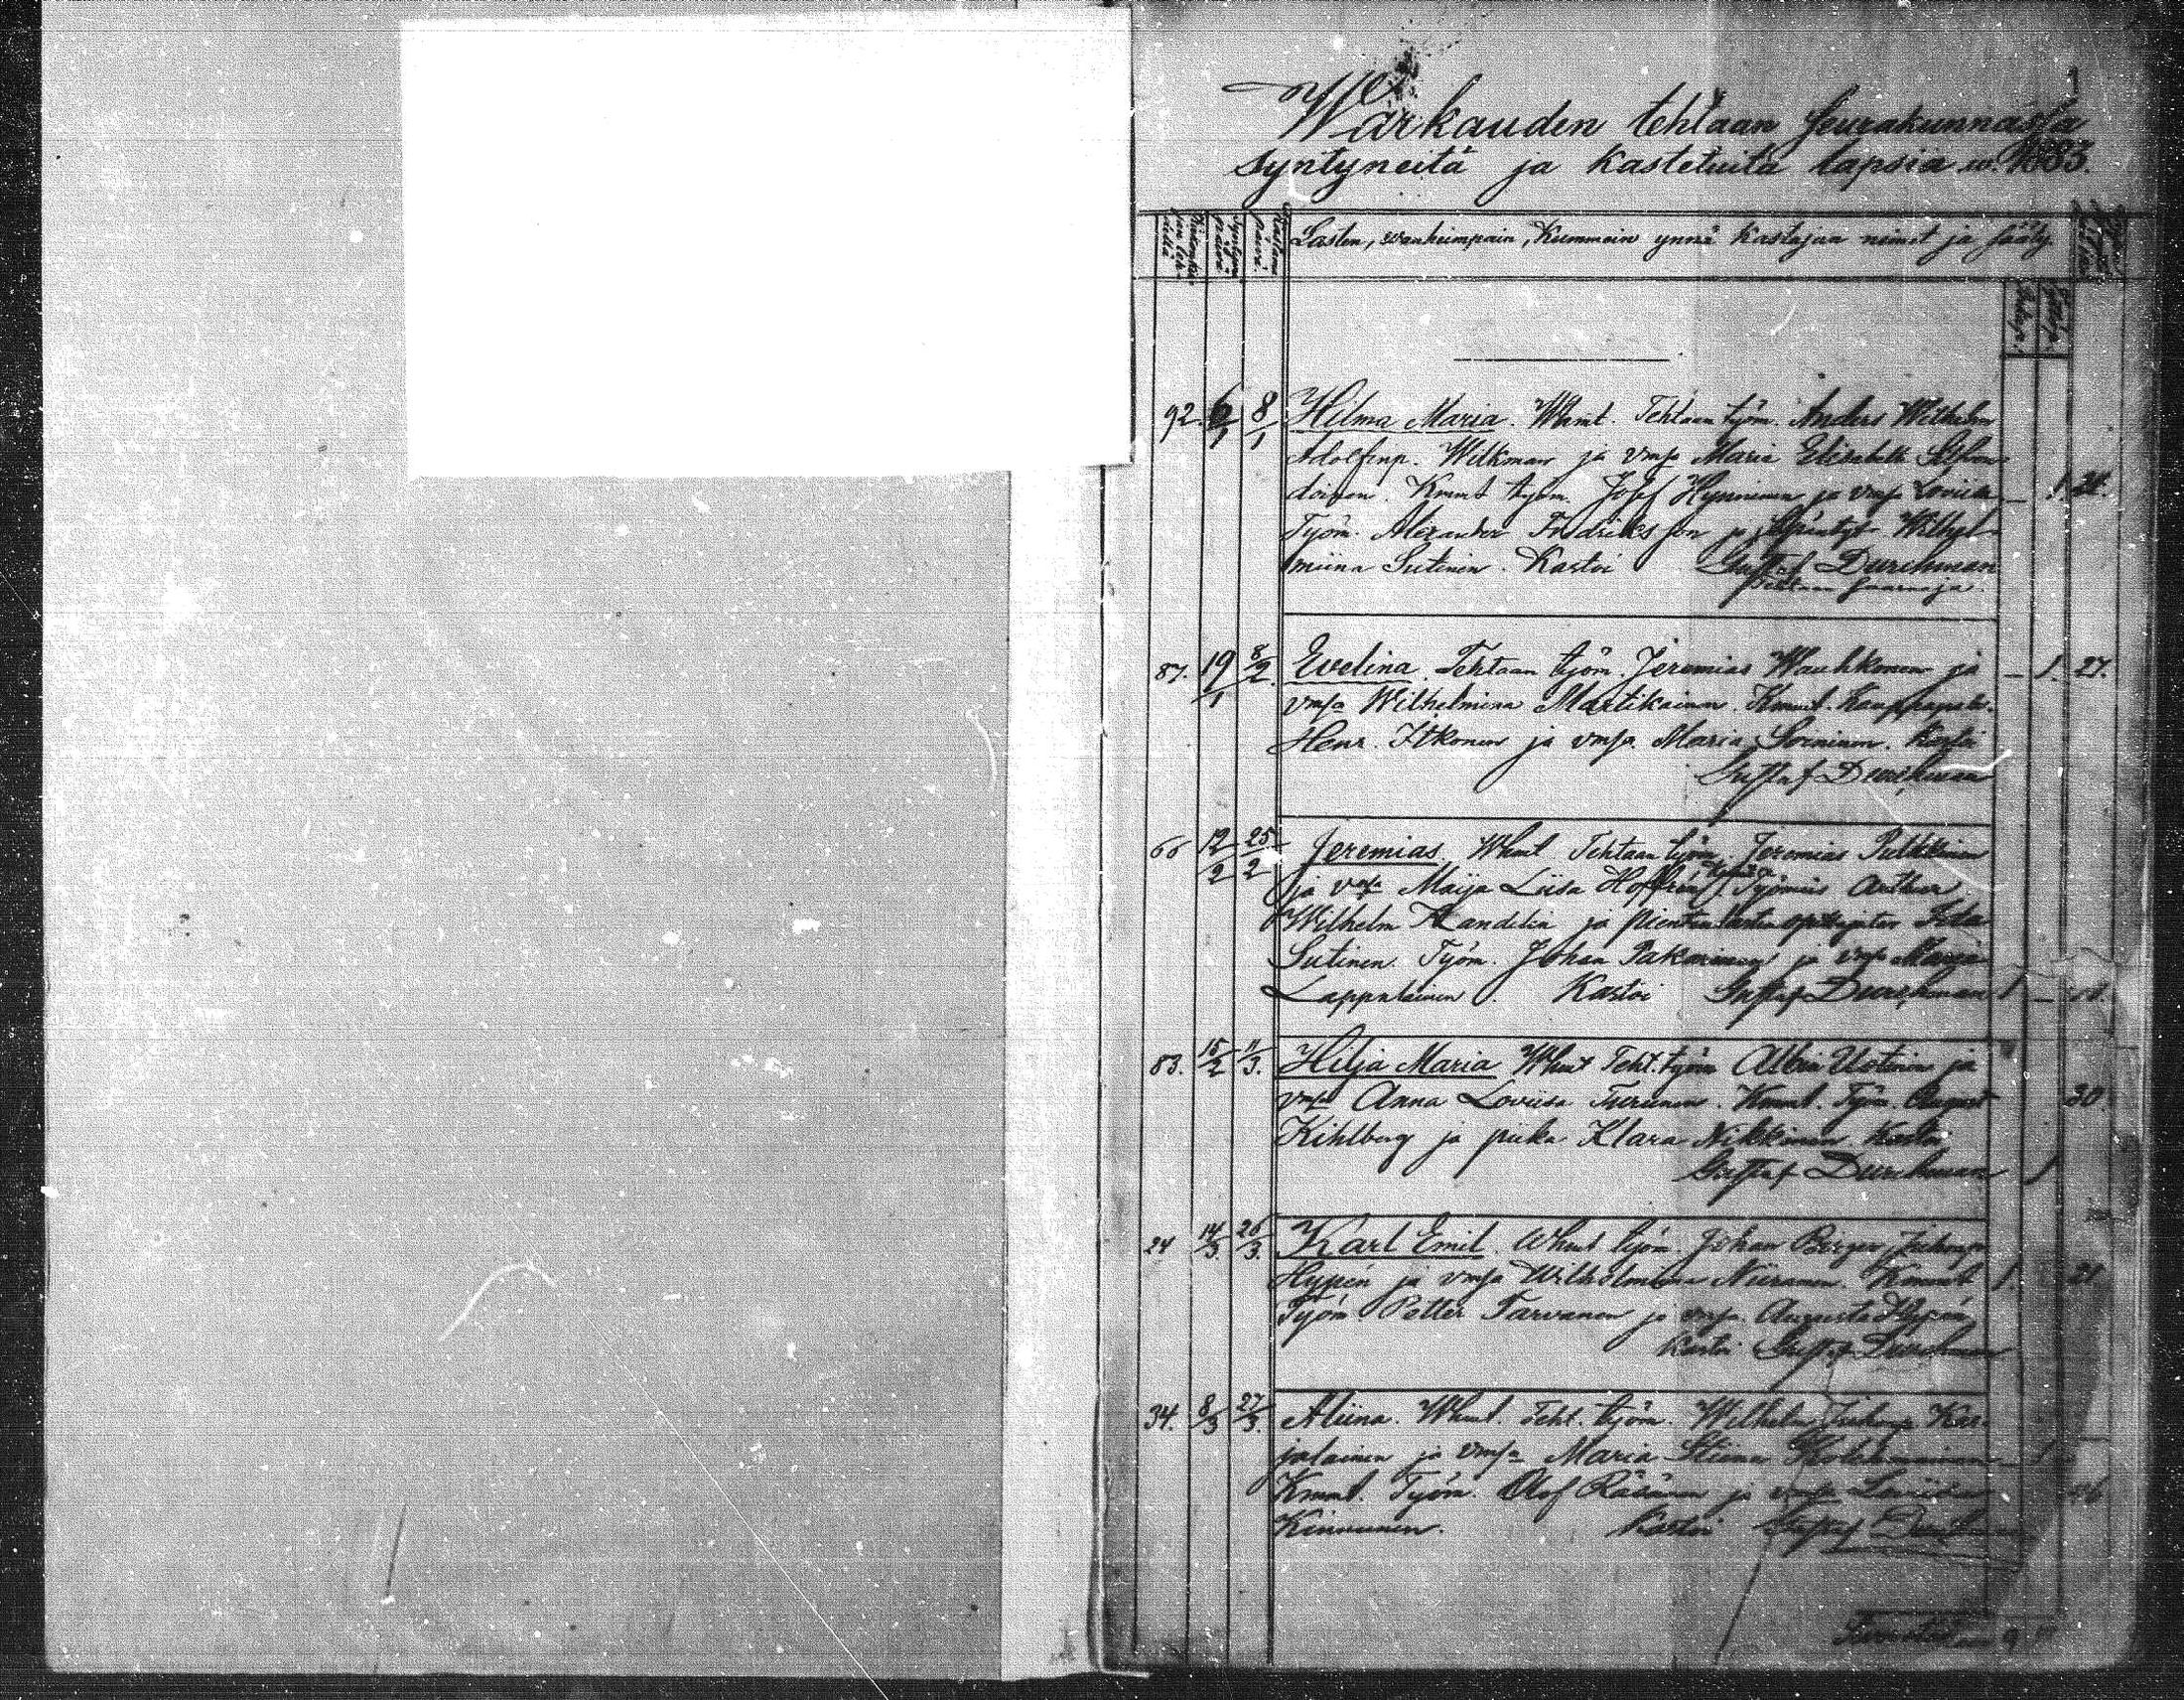 1
Warkauden tehtaan seurakunnassa
syntyneitä ja kastetuita lapsia w. 1883.
Lasten, wanhempain, Kummein ynnä kastajan nimet ja sääty
92. 6/1 8/1 Hilma Maria. Whmt. Tehtaan työm. Anders Wilhelm
Adolfinp. Wilkman ja vmsa Maria Elisabeth
Kmmt työm. Josef Hynninen ja vmsa Lovisa – 1. 24.
Työm. Alexander Fredriksson ja Wilhel-
miina Sutinen. Kastoi Gustaf Durchman
Tehtaan saarnaja.
87. 19/1 8/2. Evelina. Tehtaan työm. Jeremias Wauhkonen ja – 1. 27.
vmsa Wilhelmina Martikainen. Kmmt.
Henr. Itkonen ja vmsa Maria Kastoi
Gustaf Durchman
66 12/2 25/2 Jeremias Whmt Tehtaan työm. Jeremias
ja vmsa Maija Liisa Hoffrén, Työmies Arthur
Wilhelm Randelin ja Ida
Sutinen. Työm. Johan Pakarinen ja vmsa Maria
Lappalainen. Kastoi Gustaf Durchman 1 –
83. 15/2 11/3. Hilja Maria Whmt Teht. työm Albin Ustinen ja
vmsa Anna Lovisa Turunen. Kmmt. Työm. August 30.
Kihlberg ja piika Klara Nikkinen Kastoi
Gustaf Durchman 1
24 14/3 26/3. Karl Emil. Whmt työm. Johan Birger
Hypén ja vmsa Wilhelmina Niiranen. Kmmt 1.
Työm Petter Tarvanen ja vmsa. Augusta Hypén
Kastoi Gustaf Durchman
34. 8/3 27/3. Aliina. Whmt. Teht. työm. Wilhelm Kar-
jalainen ja vmsa Maria Stiina Kolehmainen – 1
Kmmt. Työm. Olof Räsänen ja vmsa Loviisa
Kinnunen. Kastoi Gustaf Durchman